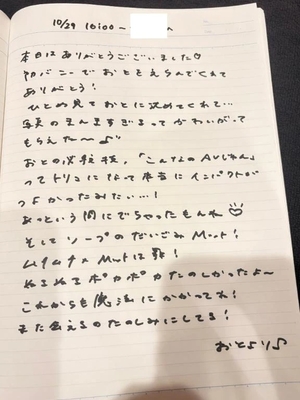 10/29 16:00~
本日はありがとうございました♡
初バニーでおとをえらんでくれて
ありがとう!
ひとめ見ておとに決めてくれて…
写真のまんますぎるってかわいがって
もらえた〜♪
おとの必殺技、「こんなのAVじゃん」
ってトリコになって本当にインパクトが
つよかったみたい…!
あっという間にでちゃったもんね♡
そしてソープのだいごみMット!
ムチムチ×Mットは
ぬるぬるポカポカたのしかったよ〜
これからも魔法にかかってね!
また会えるのたのしみにしてる!
おとより♪